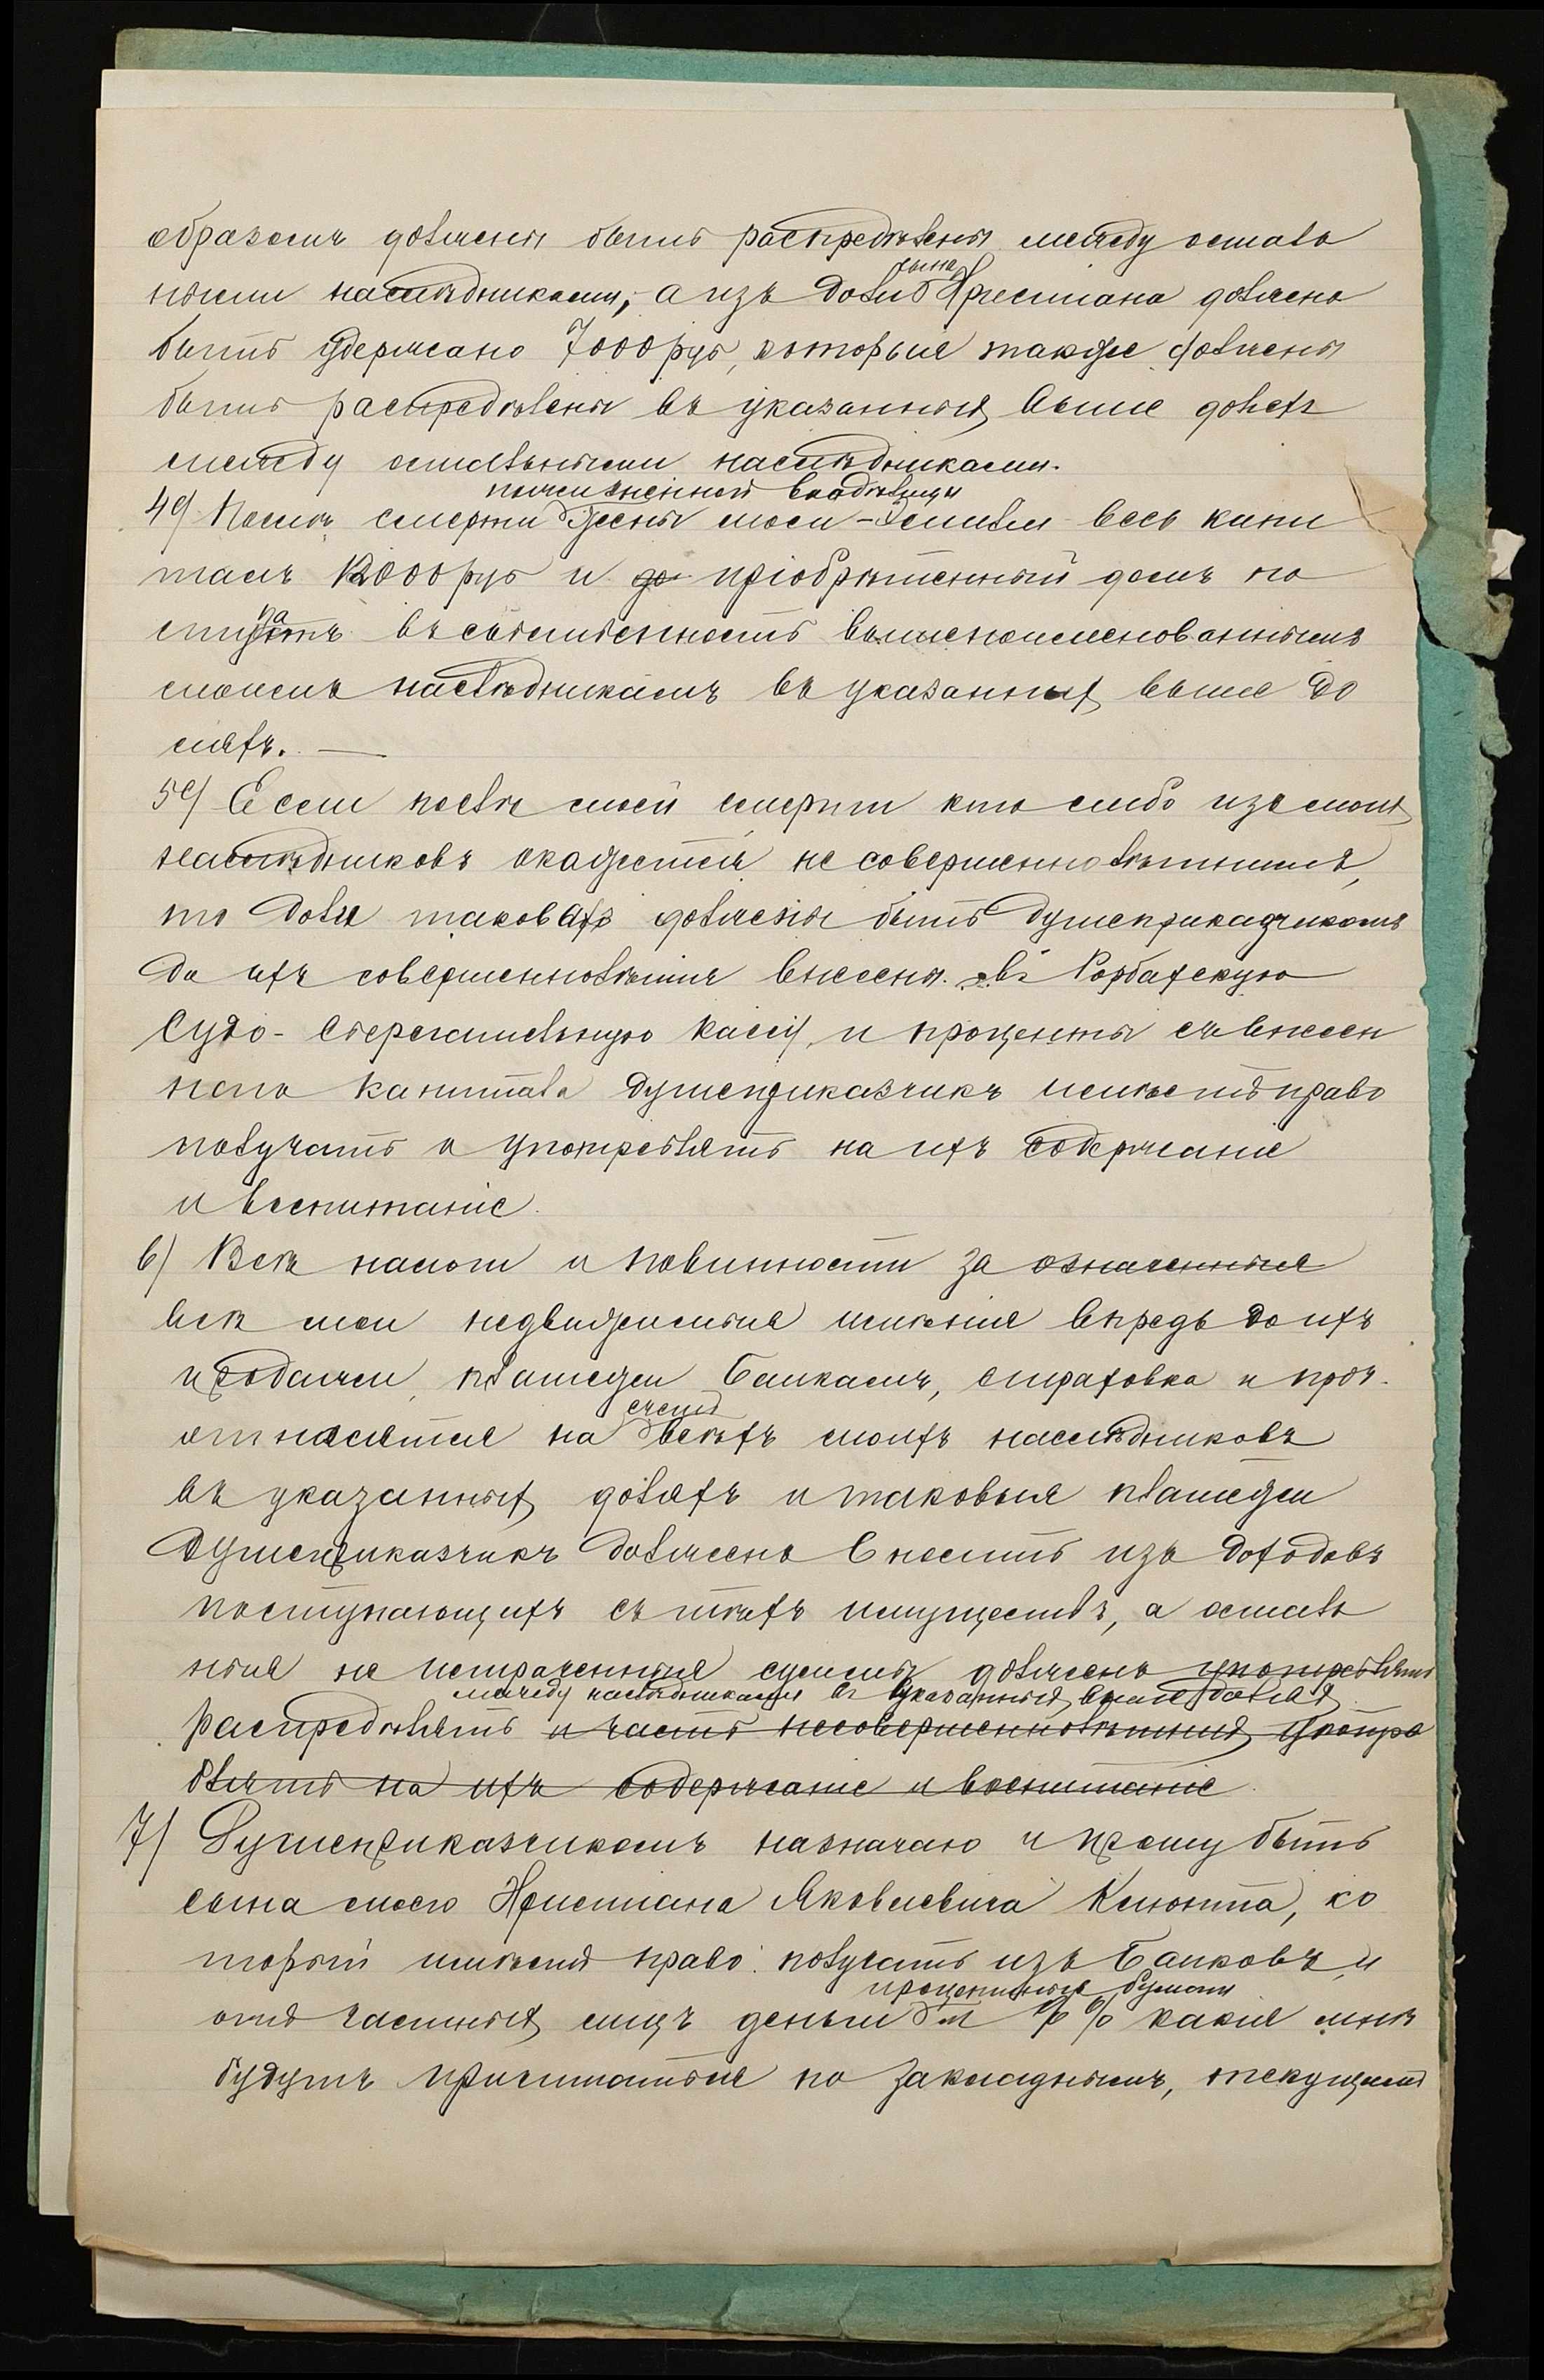 образомъ должны быть распредѣлены между осталь
ными наслѣдниками, а изъ доли сына Христіана должно
быть удержано 7000 руб, которые также должны
быть распредѣлены въ указанныхъ выше доляхъ
между остальными наслѣдниками.
4е/ Послѣ смерти пожизненной владѣлицы жены моей - Эмиліи весь капи
талъ 12000 руб и до пріобрѣтенный домъ по
ступатъ въ собственность вышепоименованнымъ
моимъ наслѣдникамъ въ указанныхъ выше до
ляхъ. —
5е/ Если послѣ моей смерти кто либо изъ моихъ
наслѣдниковъ окажется не совершеннолѣтнимъ,
то доля таковахъ должны быть душеприказчикомъ
до ихъ совершеннолѣтія внесены въ Горбатскую
Судо-Сберегательную кассу, и проценты съ внесен
наго капитала душеприказчикъ имѣетъ право
получать и употреблять на ихъ содержаніе
и воспитаніе.
6/ Всѣ налоги и повинности за означенныя
всѣ мои недвижимыя имѣнія впредь до ихъ
продажи, платежи Банкамъ, страховка и проч.
относятся на счетъ всѣхъ моихъ наслѣдниковъ
въ указанныхъ доляхъ и таковыя платежи
душеприказчикъ долженъ вносить изъ доходовъ
поступающихъ съ тѣхъ имуществъ, а осталь
ныя не истраченныя суммы долженъ употреблять
между наслѣдниками въ указанныхъ выше доляхъ
распредѣлять и часть несовершеннолѣтнихъ употре
блять на ихъ содержаніе и воспитаніе.
7/ Душеприказчикомъ назначаю и прошу быть
сына моего Христіана Яковлевича Клюнта, ко
торый имѣетъ право получать изъ Банковъ и
отъ частныхъ лицъ деньги процентныя бумаги и % % какія мнѣ
будутъ причитаться по закладнымъ, текущимъ